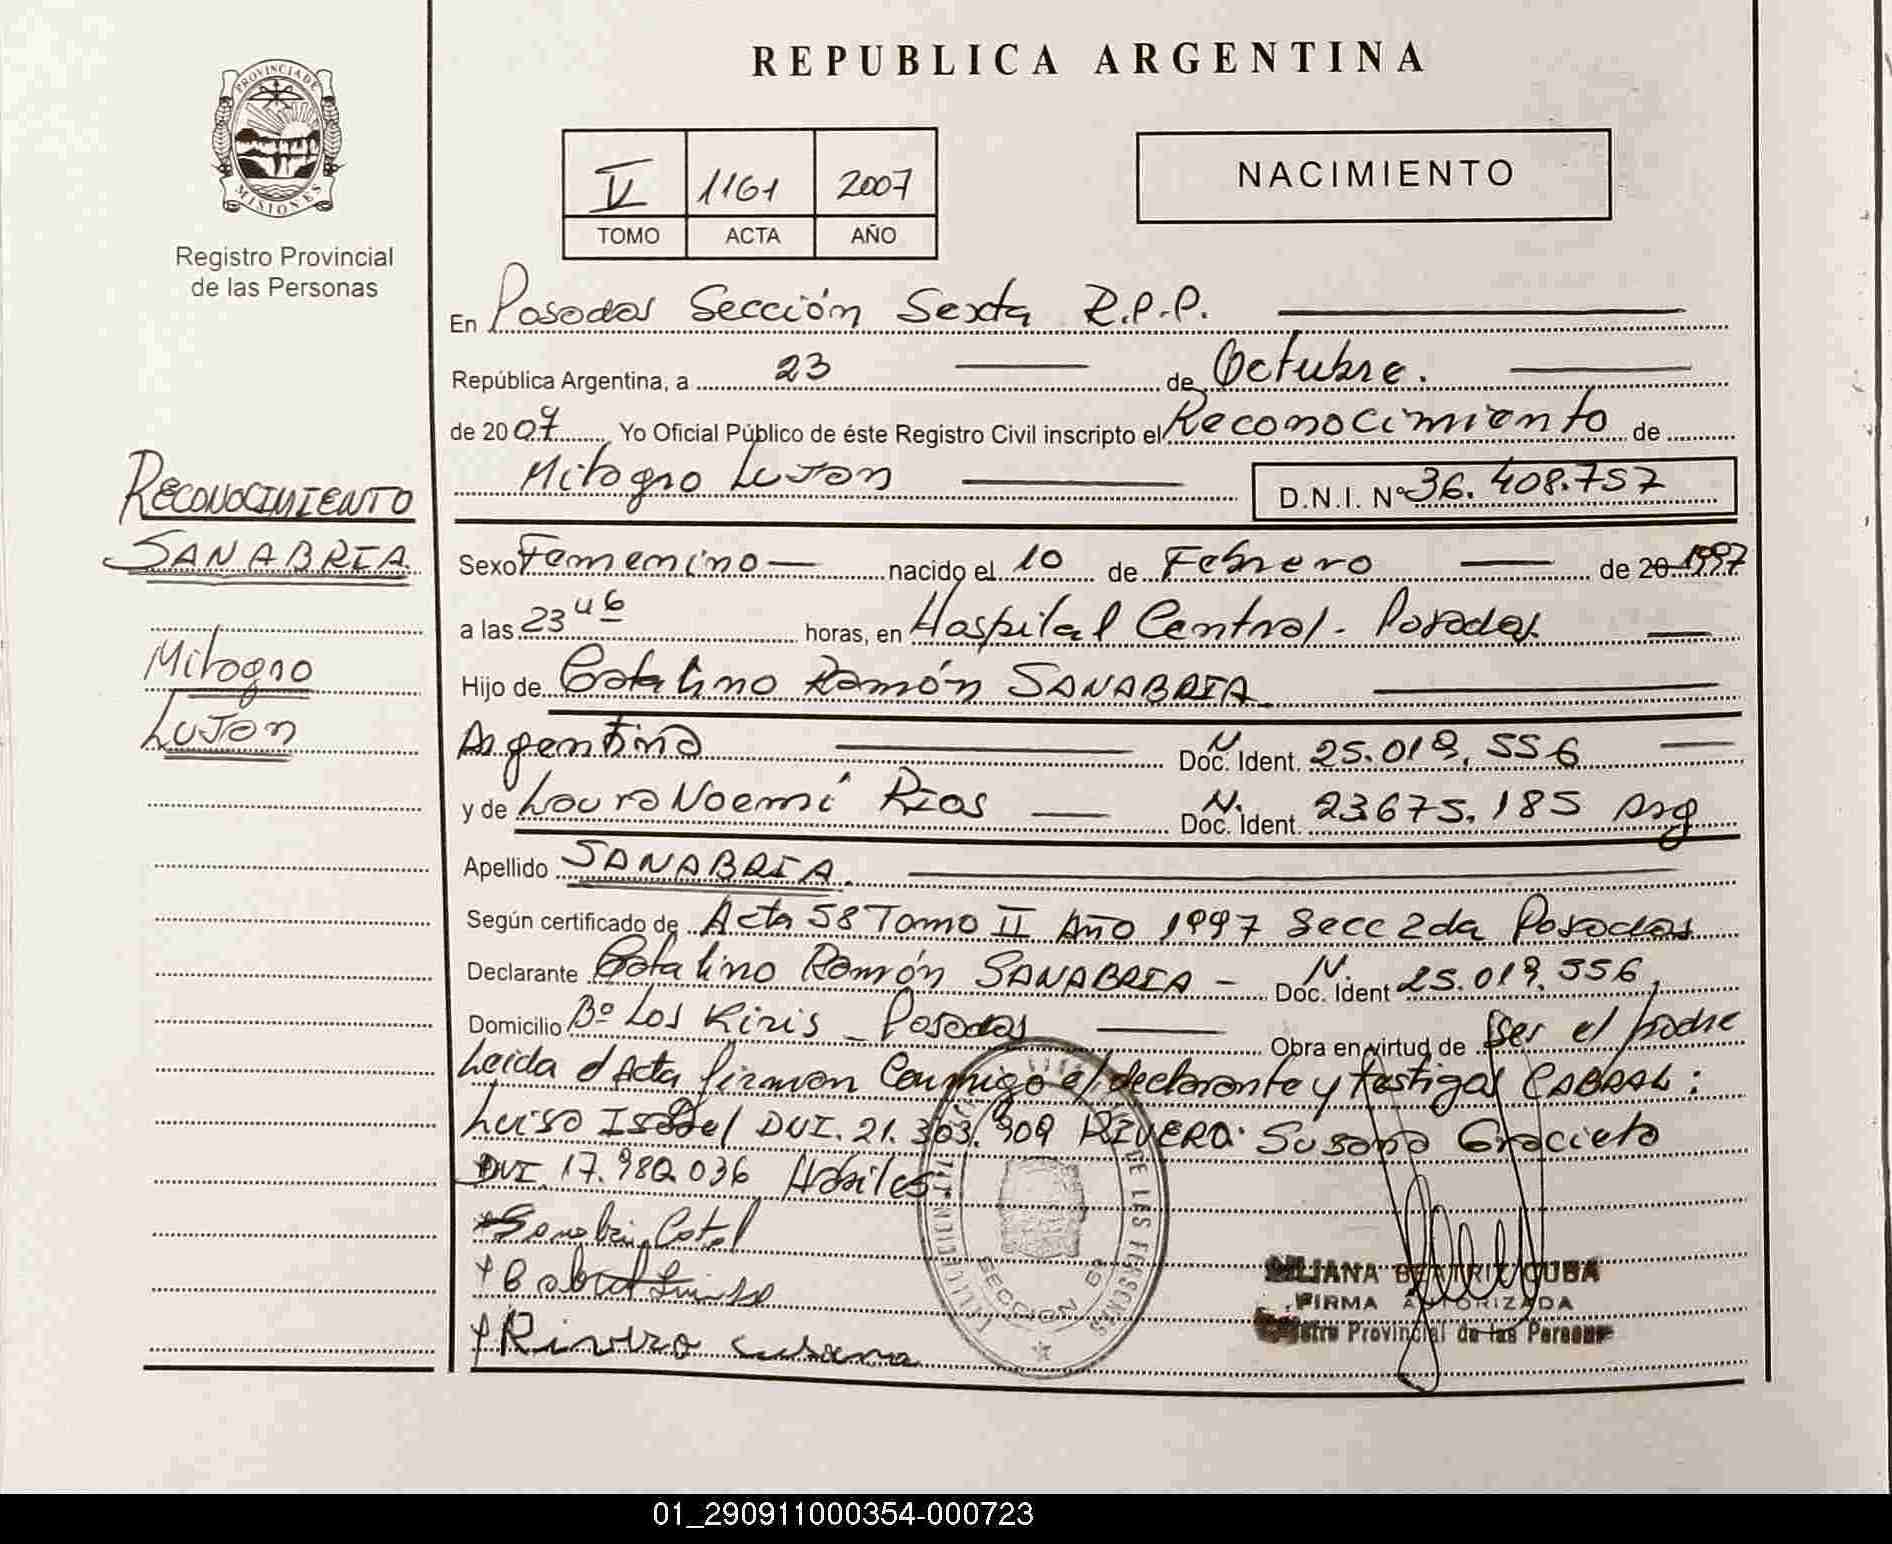 REPUBLICA ARGENTINA
PROVINCIA DE
MISIONES
Registro Provincial
de las Personas
V 1161 2007
TOMO ACTA AÑO
NACIMIENTO
En Posadas Sección Sexta R.P.P.
República Argentina, a 23 de Octubre.
de 2007 Yo Oficial Público de éste Registro Civil inscripto el Reconocimiento de
Milagro Lujan D.N.I. Nº 36.408.757
RECONOCIMIENTO
SANABRIA
Milagro
Lujan
Sexo Femenino nacido el 10 de Febrero de 20 1997
a las 23 46 horas, en Hospital Central - Posadas
Hijo de Catalino Ramón SANABRIA
Argentina N Doc. Ident. 25.019.556
y de Laura Noemí Rios N. Doc. Ident. 23.675.185 Arg
Apellido SANABRIA.
Según certificado de Acta 58 Tomo II Año 1997 Secc 2da Posadas
Declarante Catalino Ramón SANABRIA - N. Doc. Ident 25.019.556,
Domicilio Bº Los Kiris - Posadas Obra en virtud de Ser el padre
Leida el Acta firman Conmigo el declarante y testigos CABRAL:
Luisa Isabel DNI. 21.303.909 RIVERO: Susana Graciela
DNI. 17.980.036 Hábiles
Sanabria Catal
Cabral Luisa
Rivero Susana
DE LAS PERSONAS
SECCION 6a
LILIANA BEATRIZ CUBA
FIRMA AUTORIZADA
Registro Provincial de las Personas
01_290911000354-000723